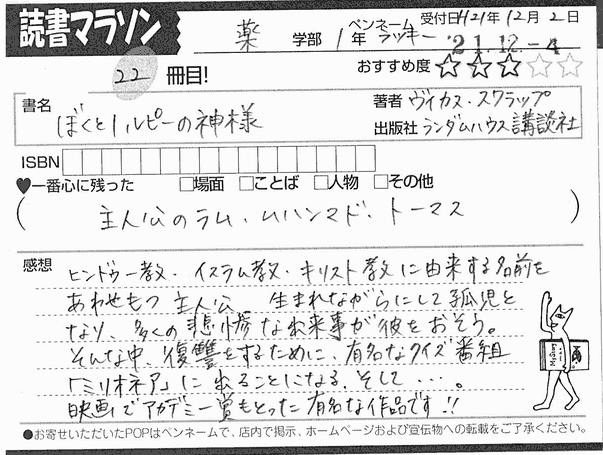 読書マラソン
薬 学部 1年 ペンネーム ラッキー 受付日 H21年12月2日
'21.12.-4
22 冊目!
おすすめ度 ★★★☆☆
書名
ぼくと1ルピーの神様
著者 ヴィカス・スワラップ
出版社 ランダムハウス講談社
ISBN
♥一番心に残った □場面 □ことば □人物 □その他
(主人公のラム・ムハンマド・トーマス)
感想
ヒンドゥー教・イスラム教・キリスト教に由来する名前を
あわせもつ 主人公 生まれながらにして孤児と
なり、多くの悲惨な出来事が彼をおそう。
そんな中、復讐をするために、有名なクイズ番組
「ミリオネア」に出ることになる。そして・・・。
映画でアカデミー賞もとった有名な作品です!!
●お寄せいただいたPOPはペンネームで、店内で掲示、ホームページおよび宣伝物への転載をご了承ください。